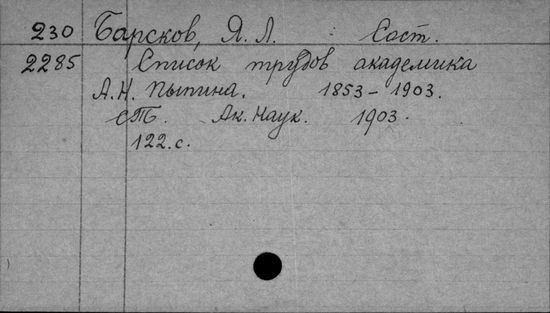 230 Барсков, Я. Л. Сост.
2285 Список трудов академика
А.Н. Пыпина. 1853-1903.
СПб. Ак. Наук. 1903.
122.с.